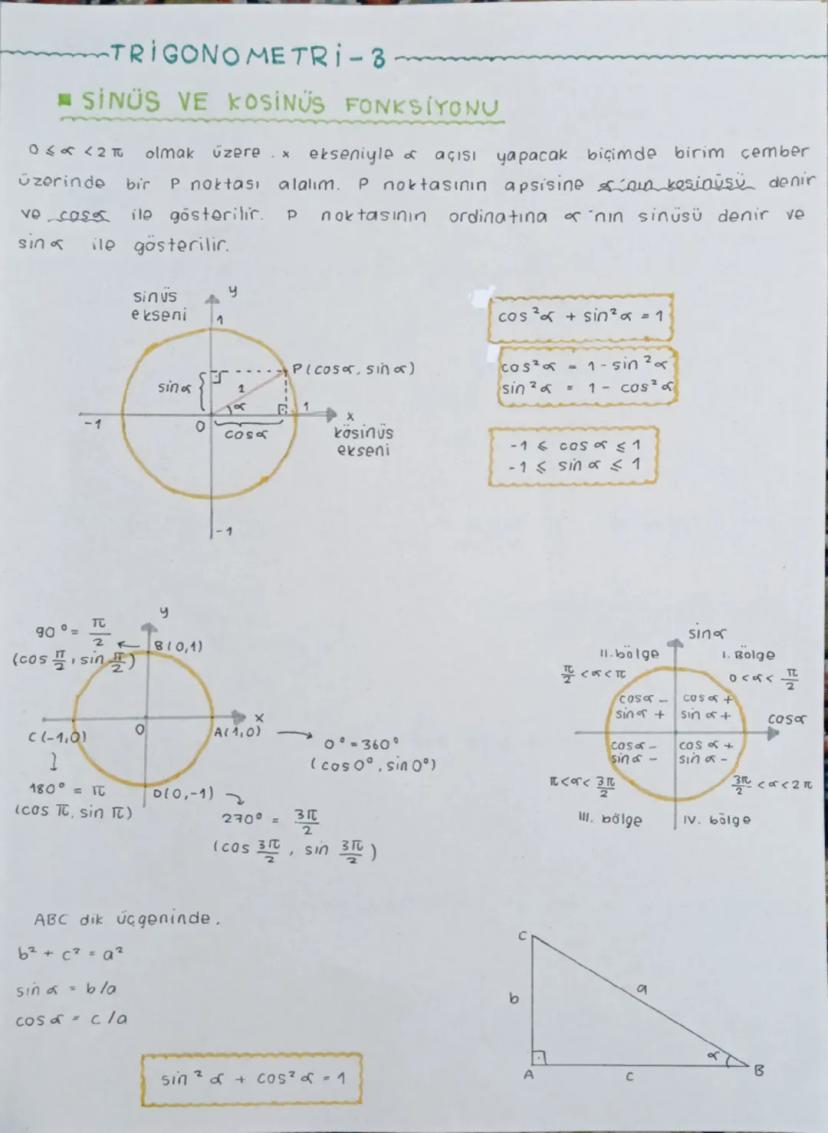 TRİGONOMETRİ-3
SİNÜS VE KOSİNÜS FONKSİYONU
0 ≤ α < 2π olmak üzere . x ekseniyle α açısı yapacak biçimde birim çember
üzerinde bir P noktası alalım. P noktasının apsisine α'nın kosinüsü denir
ve cosα ile gösterilir. P noktasının ordinatına α'nın sinüsü denir ve
sin α ile gösterilir.
sinüs
ekseni
y
1
P(cosα, sinα)
sinα
1
α
-1
0
cosα
1
x
kösinüs
ekseni
-1
cos²α + sin²α = 1
cos²α = 1 - sin²α
sin²α = 1 - cos²α
-1 ≤ cos α ≤ 1
-1 ≤ sin α ≤ 1
y
90° = π/2
(cos π/2, sin π/2)
B(0,1)
x
0
C(-1,0)
A(1,0)
0° = 360°
(cos0°, sin0°)
180° = π
(cos π, sin π)
D(0,-1)
270° = 3π/2
(cos 3π/2, sin 3π/2)
sinα
II. bölge
I. Bölge
π/2 < α < π
0 < α < π/2
cosα - cosα +
sinα + sin α +
cosα
cosα - cos α +
sinα - sin α -
π < α < 3π/2
3π/2 < α < 2π
III. bölge
IV. bölge
ABC dik üçgeninde.
b² + c² = a²
sin α = b/a
cos α = c/a
sin²α + cos²α = 1
C
b
a
α
A
c
B